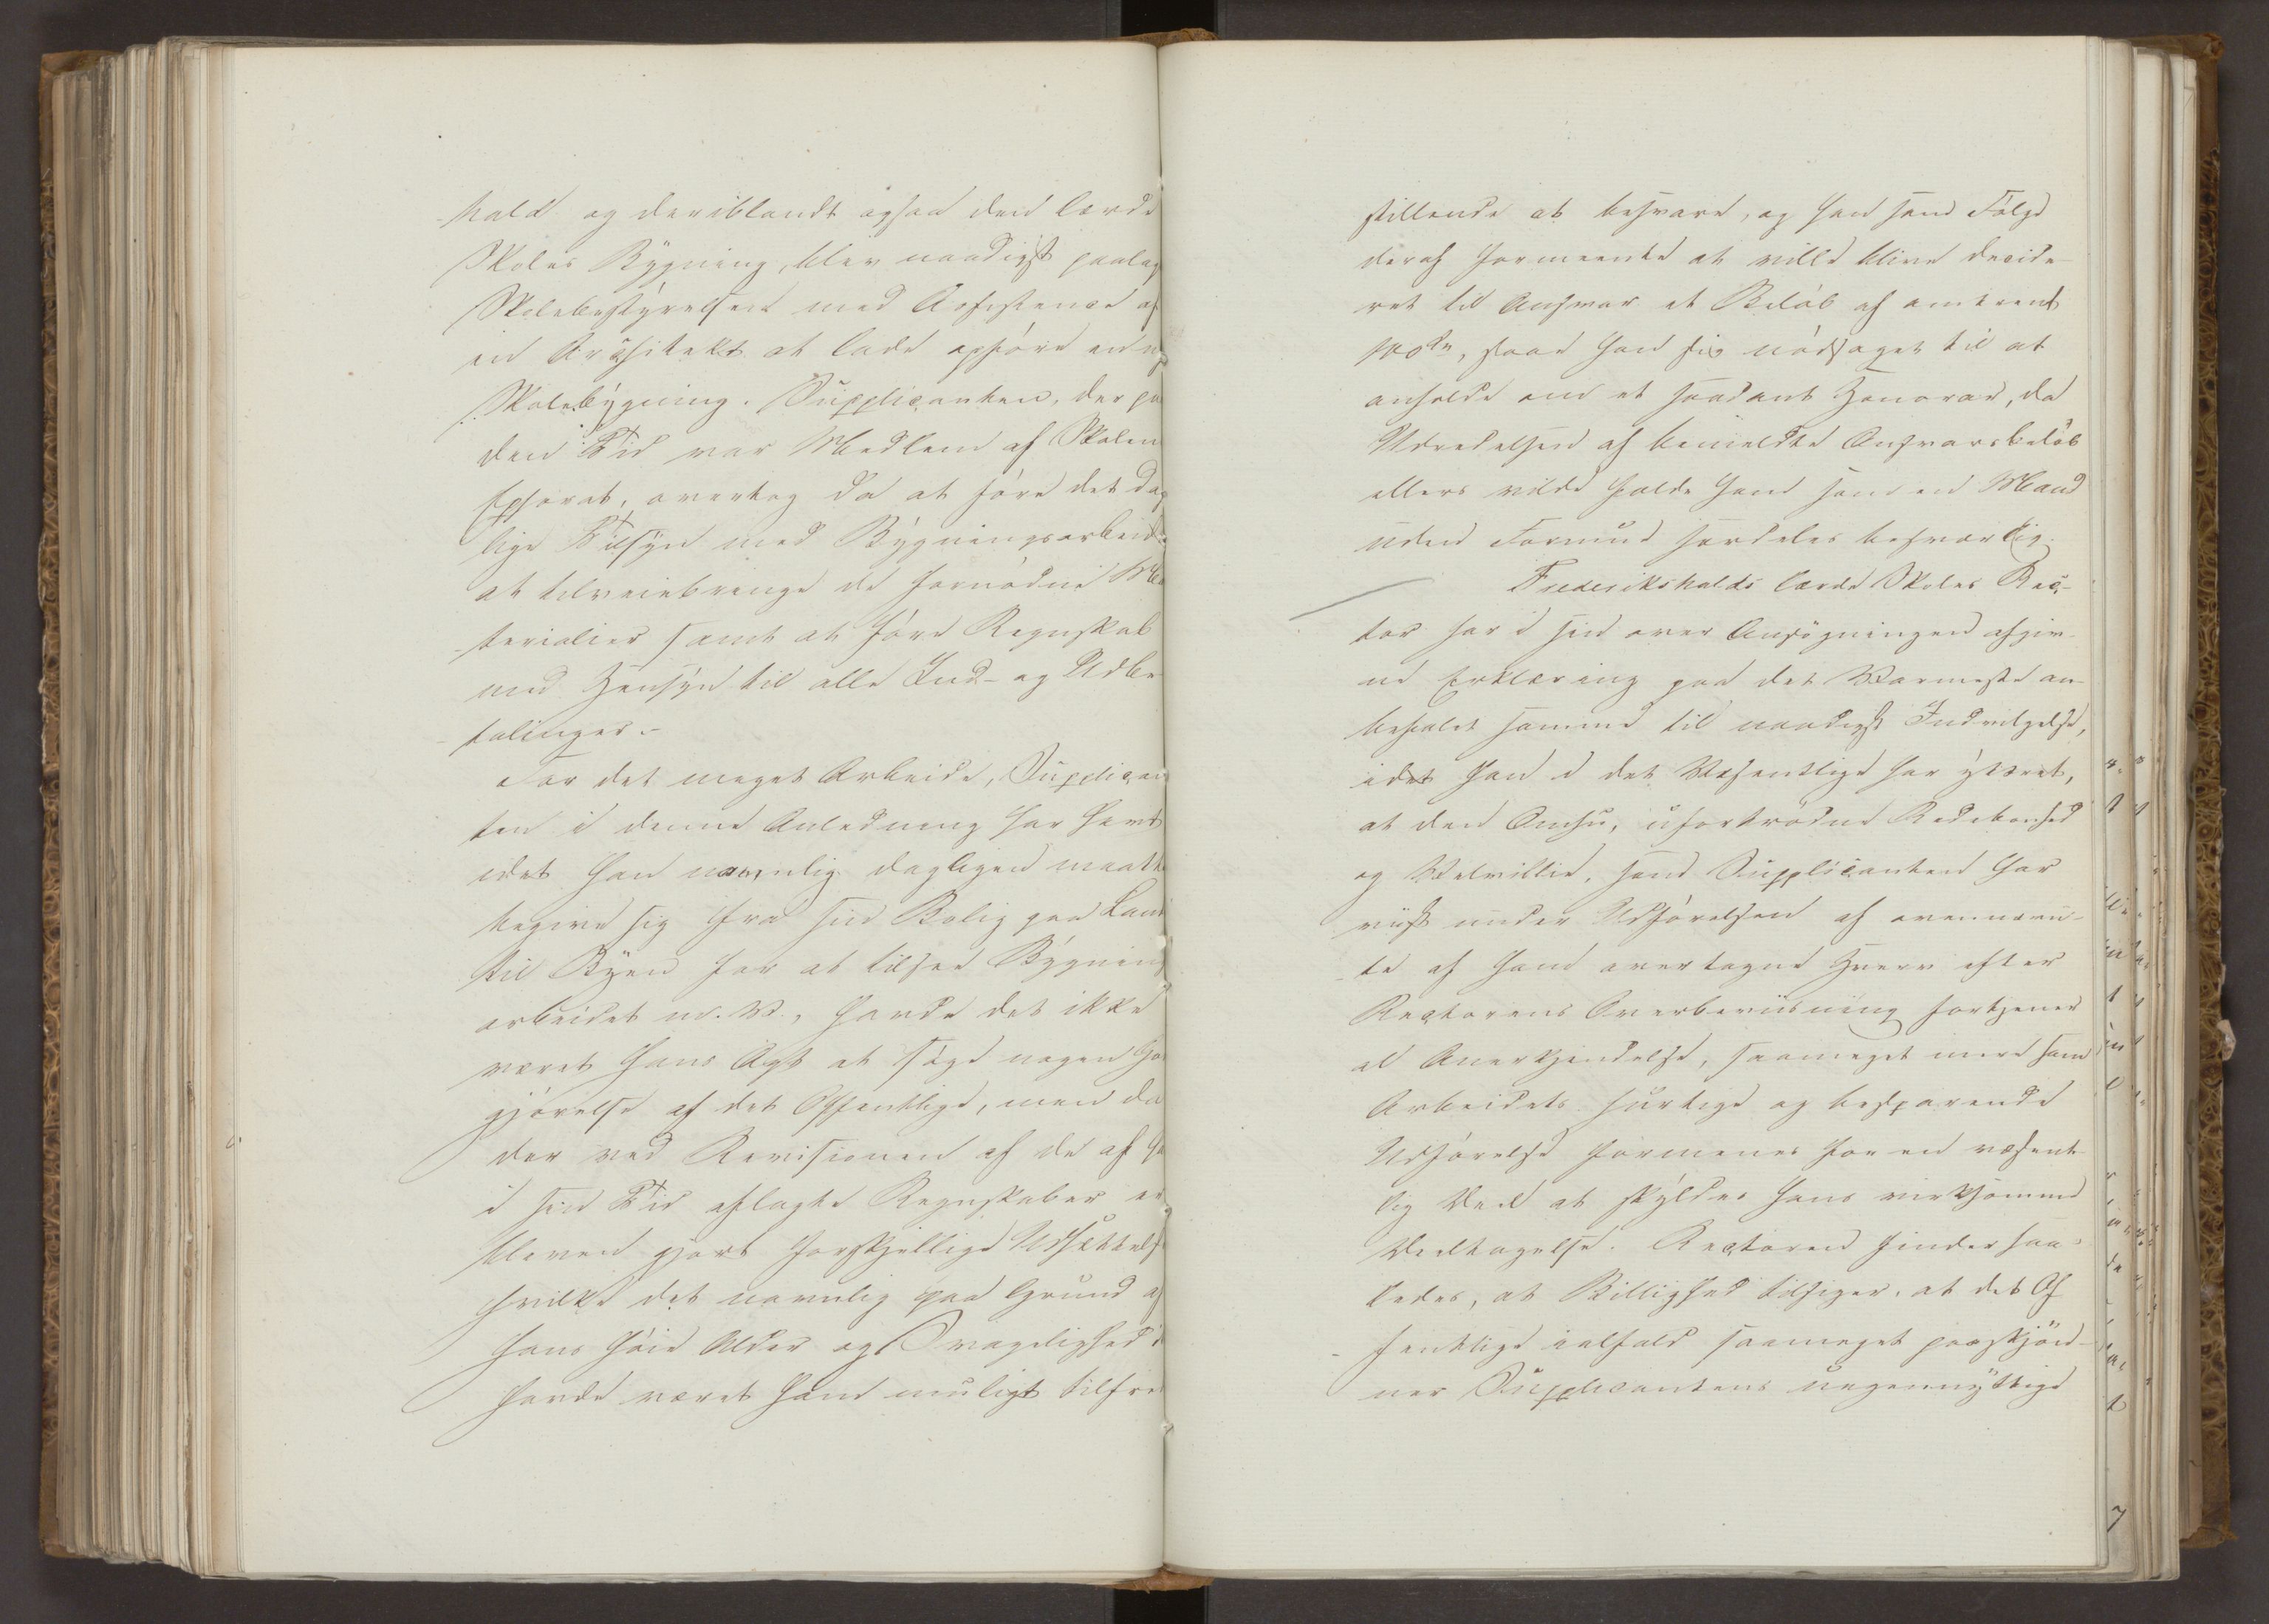 hald og deriblandt ogsaa den lærde
Skoles Bygning, blev naadigst paalag
Skolebestyrelsen med Assistence af
en Architekt at lade opføre en ny
Skolebygning. Supplicanten, der paa
den Tid var Medlem af Skolens
Ephorat, overtog da at føre det dag
lige Tilsyn med Bygningsarbeide
at tilveiebringe de fornødne Ma
terialier samt at føre Regnskab
med Hensyn til alle Ind- og Udbe
talinger.-
For det meget Arbeide, Supplican
ten i denne Anledning har havt
idet han navnlig dagligen maatte
begive sig fra sin Bolig paa Land
til Byen for at tilsee Bygnings
arbeidet m. V., havde det ikke
været hans Agt at søge nogen God
gjørelse af det Offentlige, men da
der ved Revisionen af de af ha
i sin Tid aflagte Regnskaber er
bleven gjort forskjellige Udsættelse
hvilke det navnlig paa Grund af
hans høie Alder og Svagelighed i
havde været ham muligt tilfreds
stillende at besvare, og han som Følge
deraf formeente at ville blive decide-
ret til Ansvar et Beløb af omtrent
saae han sig nødsaget til at
anholde om et saadant Honorar, da
Udredelsen af bemeldte Ansvarsbeløb
ellers vilde falde ham som en Mand
uden Formue særdeles besværlig.
Frederikshalds lærde Skoles Rec-
tor har i sin over Ansøgningen afgiv-
ne Erklæring paa det Varmeste an-
befalet samme til naadigst Indvilgelse,
idet han i det Væsentlige har yttret,
at den Omhu, ufortrødne Redebonhed
og Velvillie, som Supplicanten har
viist under Udførelsen af ovennævn-
te af ham overtagne Hverv efter
Rectorens Overbeviisning fortjener
al Anerkjendelse, saameget mere som
Arbeidets hurtige og besparende
Udførelse formenes for en væsent-
lig Deel at skyldes hans virksomme
Deeltagelse. Rectoren finder saa-
ledes, at Billighed tilsiger, at det Of-
fentlige ialfald saameget paaskjøn-
ner Supplicantens uegennyttige